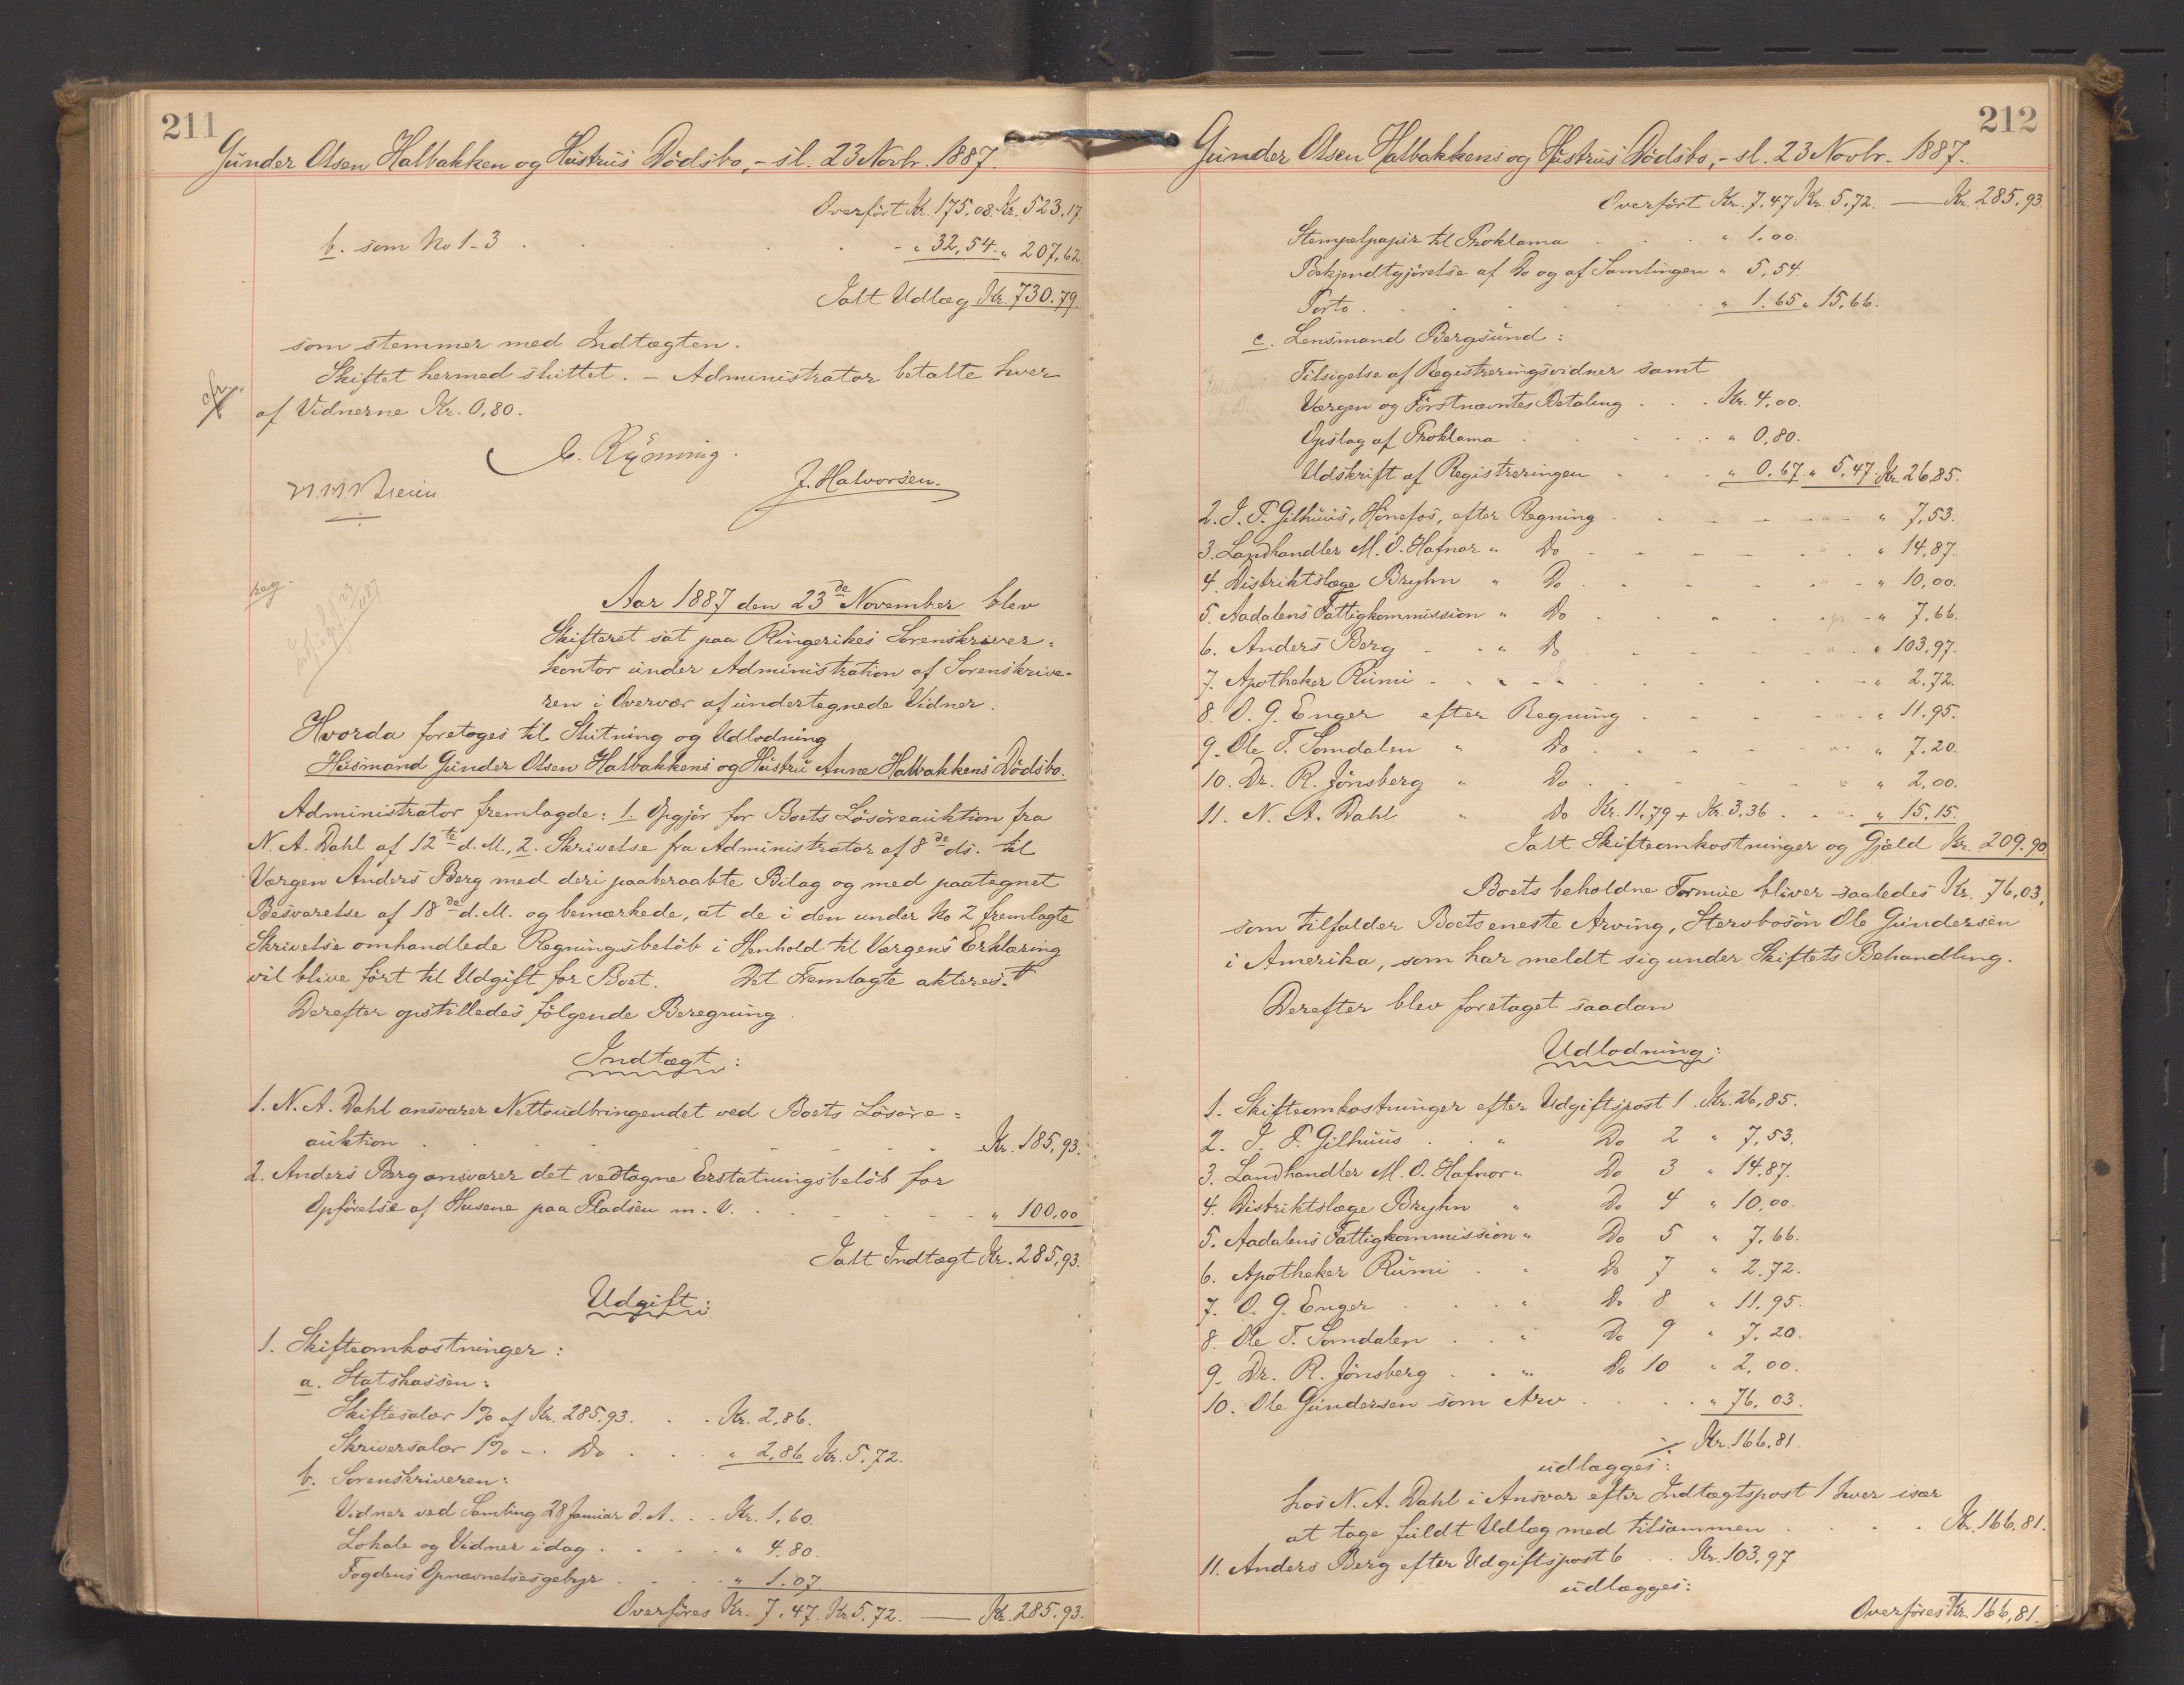 211
Gunder Olsen Halbakken og Hustrus Dödsbo, - sl. 23 Novbr. 1887.
Overført Kr. 175,08. Kr. 523.17
b. som No 1-3 . . . . - " 32,54. " 207,62
Ialt Udlæg Kr. 730.79.
som stemmer med Indtægten.
Skiftet hermed sluttet. - Administrator betalte hver
cfr.
af Vidnerne Kr. 0,80.
C. Ryönning.
J. Halvorsen.
reg.
Aar 1887 den 23de November blev
Skifteret sat paa Ringerikes Sorenskriver=
kontor under Administration af Sorenskrive-
ren i Overvær af undertegnede Vidner.
Hvorda foretoges til Slutning og Udlodning
Husmand Gunder Olsen Halbakkens og Hustru Anne Halbakkens Dödsbo.
Administrator fremlagde: 1. Opgjör for Boets Lösöreauktion fra
N. A. Dahl af 12te d. M., 2. Skrivelse fra Administrator af 8de ds. til
Værgen Anders Berg med deri paaberaabte Bilag og med paategnet
Besvarelse af 18de d. M. og bemærkede, at de i den under No 2 fremlagte
Skrivelse omhandlede Regningsbelöb i Henhold til Værgens Erklæring
vil blive fört til Udgift for Boet. Det Fremlagte akteres.
Derefter opstilledes fölgende Beregning.
Indtægt:
1. N. A. Dahl ansvarer Nettoudbringendet ved Boets Lösöre=
auktion . . . . . . Kr. 185,93.
2. Anders Berg ansvarer det vedtagne Erstatningsbelöb for
Opförelse af Husene paa Pladsen m. V. . . . . " 100,00
Ialt Indtægt Kr. 285,93.
Udgift:
1. Skifteomkostninger:
a. Statskassen:
Skiftesalær 1% af Kr. 285.93. . . Kr. 2,86.
Skriversalær 1% - . Do . . . " 2,86 Kr. 5,72.
b. Sorenskriveren:
Vidner ved Samling 28 Januar d. A. . . Kr. 1,60.
Lokale og Vidner idag . . . . " 4.80.
Fogdens Opnævnelsesgebyr . . . " 1.07
Overföres Kr. 7,47. Kr 5,72. — Kr. 285.93.
212
Gunder Olsen Halbakkens og Hustrus Dödsbo, - sl. 23 Novbr. 1887.
Overført Kr. 7.47 Kr. 5,72. — Kr. 285,93.
Stempelpapir til Proklama . . . " 1.00.
Bekjendtgjörelse af Do og af Samlingen " 5,54.
Porto . . . . . " 1.65 " 15,66.
c. Lensmand Bergsund:
Tilsigelse af Registreringsvidner samt
Værgen og Förstnævntes Betaling . . . Kr. 4,00.
Opslag af Proklama . . . . " 0,80.
Udskrift af Registreringen . . . " 0.67 " 5,47. Kr. 26,85.
2. J. F. Gilhuus, Hönefos, efter Regning . . . " 7,53.
3. Landhandler M. O. Hafnor " Do . . . " 14,87.
4. Distriktslæge Bryhn " Do . . . " 10,00.
5. Aadalens Fattigkommission " Do . . . " 7,66.
6. Anders Berg . . " Do . . . " 103,97.
7. Apotheker Rumi . . . . . " 2,72.
8. O. G. Enger efter Regning . . . " 11.95.
9. Ole T. Somdalen " Do . . . " 7.20.
10. Dr. R. Jönsberg " Do . . . " 2,00.
11. N. A. Dahl " Do Kr. 11,79 + Kr. 3,36 . . . " 15,15.
Ialt Skifteomkostninger og Gjæld Kr. 209.90
Boets beholdne Formue bliver saaledes Kr. 76,03,
som tilfalder Boets eneste Arving, Stervbosön Ole Gundersen
i Amerika, som har meldt sig under Skiftets Behandling.
Derefter blev foretaget saadan
Udlodning:
1. Skifteomkostninger efter Udgiftspost 1. Kr. 26,85.
2. J. F. Gilhuus . . " Do 2 " 7,53.
3. Landhandler M. O. Hafnor " Do 3 " 14.87.
4. Distriktslæge Bryhn " Do 4 " 10,00.
5. Aadalens Fattigkommission " Do 5 " 7.66.
6. Apotheker Rumi . " Do 7 " 2.72.
7. O. G. Enger . . . " Do 8 " 11.95.
8. Ole T. Somdalen . . " Do 9 " 7.20.
9. Dr. R. Jönsberg . . " Do 10 " 2.00.
10. Ole Gundersen som Arv . . . . " 76,03.
÷ Kr. 166,81.
udlægges:
hos N. A. Dahl i Ansvar efter Indtægtspost 1 hver især
at tage fuldt Udlæg med tilsammen . . . . Kr. 166,81.
11. Anders Berg efter Udgiftspost 6 . . Kr. 103,97
udlægges:
Overføres Kr. 166,81.